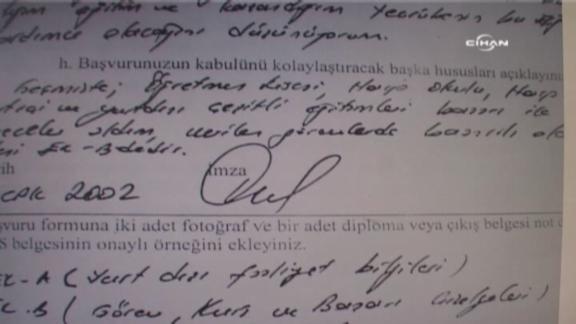 eğitim ve kazandığım tecrübenin bu
olacağını düşünüyorum.
CİHAN
h. Başvurunuzun kabulünü kolaylaştıracak başka hususları açıklayını
Geçmişte; Öğretmen Lisesi, Harp Okulu, Harp
ve yurtdışı çeşitli eğitimleri başarı ile
verilen görevlerde başarılı
Ek-B dedir.
rih
İmza
OCAK 2002
şvuru formuna iki adet fotoğraf ve bir adet diploma veya çıkış belgesi not d
S belgesinin onaylı örneğini ekleyiniz.
EK-A (Yurt dışı faaliyet bilgileri)
EK-B (Görev, Kurs ve Başarı çizelgeleri)